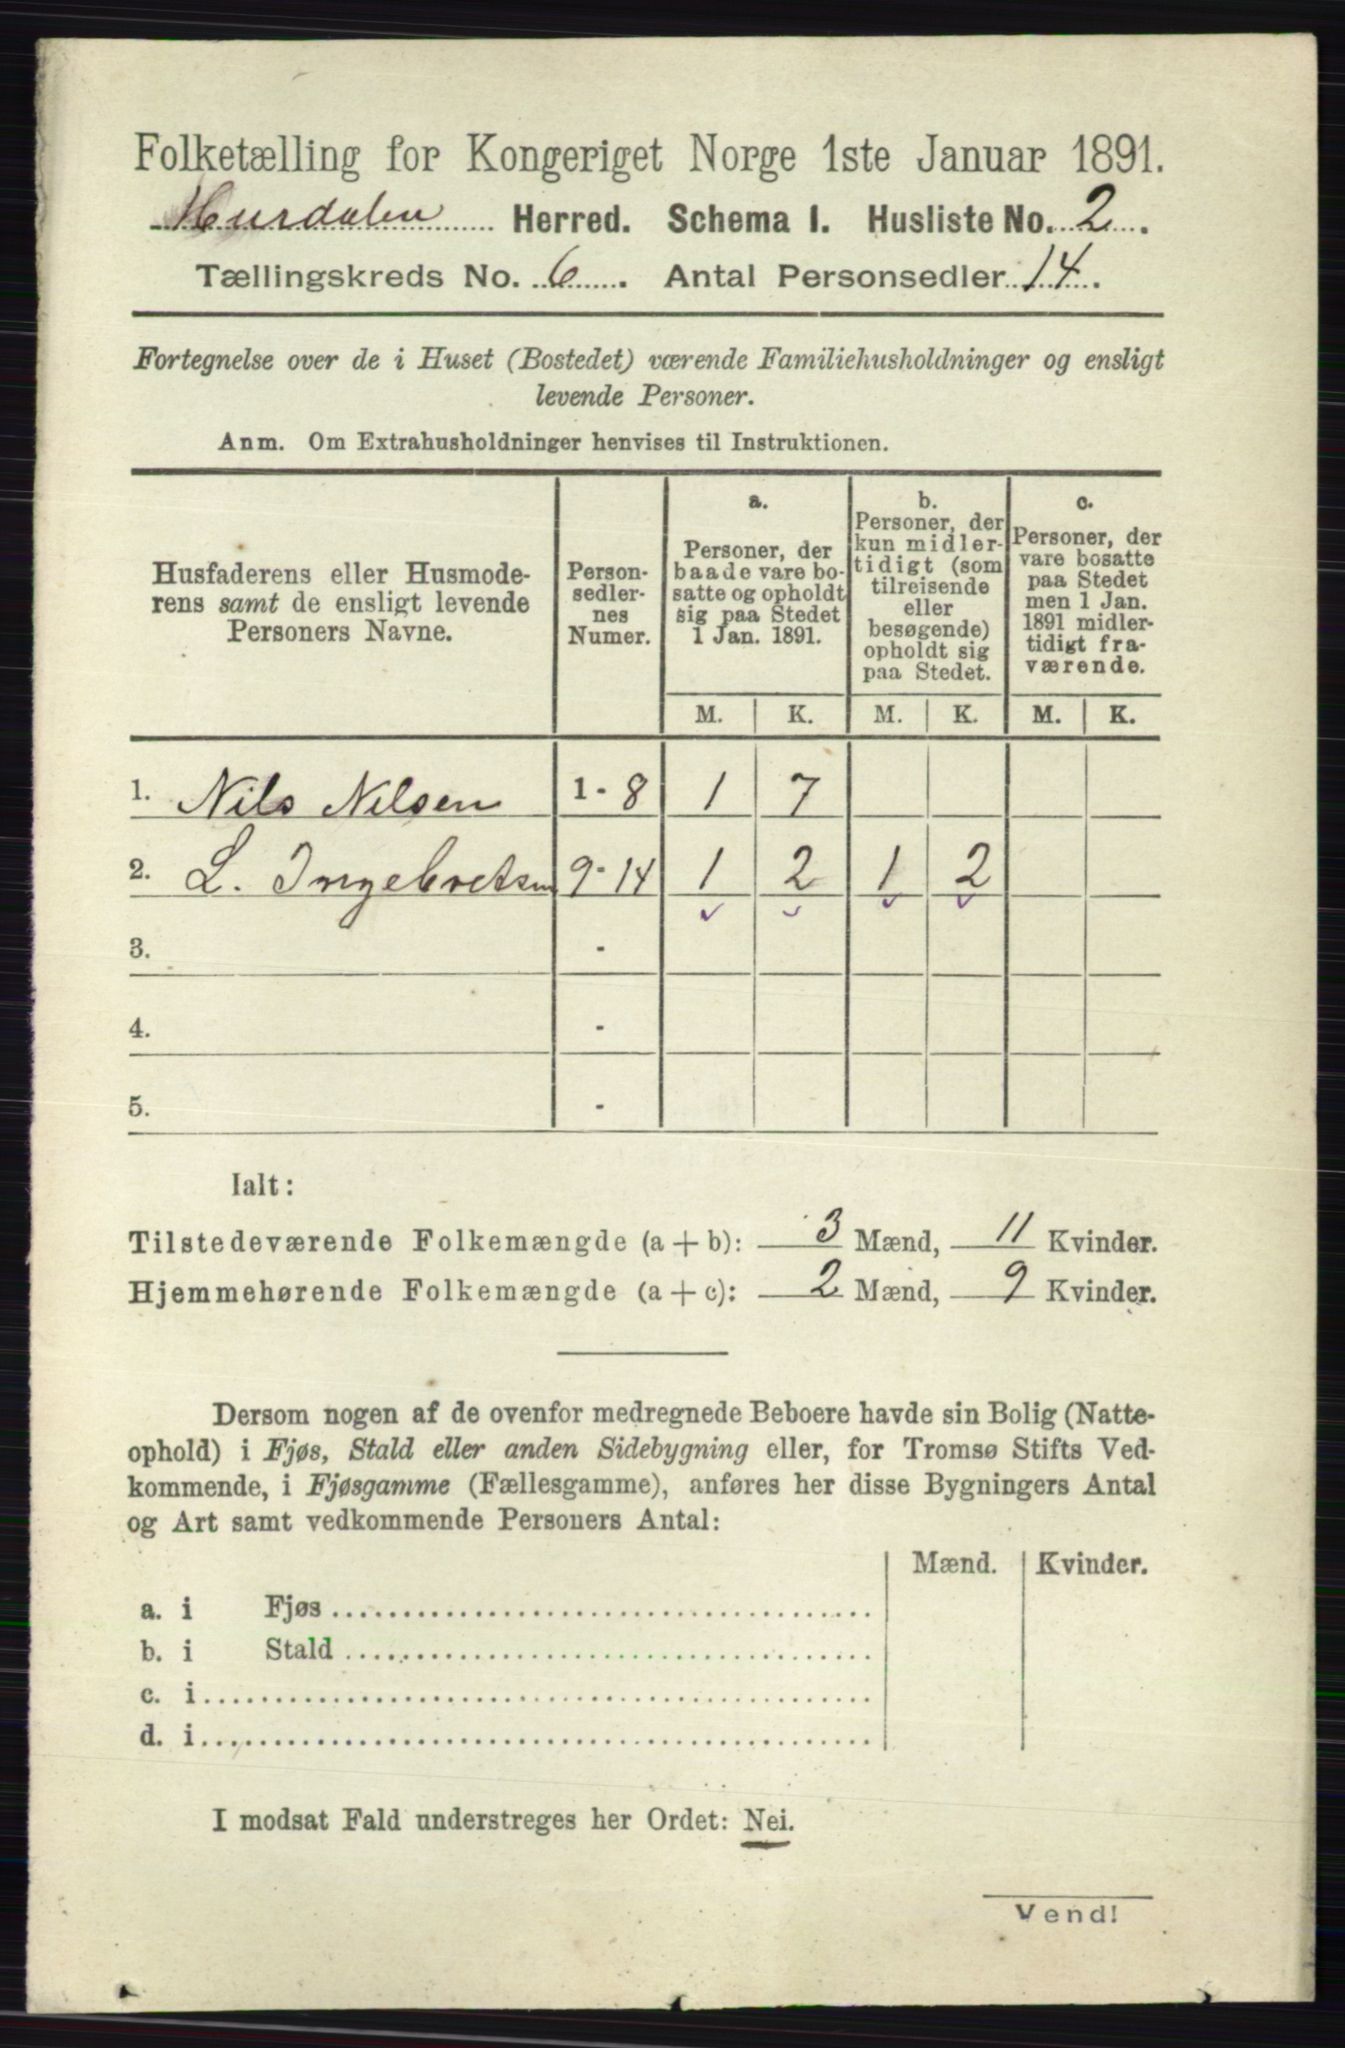 Folketælling for Kongeriget Norge 1ste Januar 1891.
Hurdalen Herred. Schema I. Husliste No. 2.
Tællingskreds No. 6. Antal Personsedler 14.
Fortegnelse over de i Huset (Bostedet) værende Familiehusholdninger og ensligt
levende Personer.
Anm. Om Extrahusholdninger henvises til Instruktionen.
Husfaderens eller Husmode-
rens samt de ensligt levende
Personers Navne.
Person-
sedler-
nes
Numer.
a.
Personer, der
baade vare bo-
satte og opholdt
sig paa Stedet
1 Jan. 1891.
b.
Personer, der
kun midler-
tidigt (som
tilreisende
eller
besøgende)
opholdt sig
paa Stedet.
c.
Personer, der
vare bosatte
paa Stedet
men 1 Jan.
1891 midler-
tidigt fra-
værende.
M. K. M. K. M. K.
1. Nils Nilsen 1-8 1 7
2. L. Ingebretsen 9-14 1 2 1 2
3. -
4. -
5. -
Ialt:
Tilstedeværende Folkemængde (a + b): 3 Mænd, 11 Kvinder.
Hjemmehørende Folkemængde (a + c): 2 Mænd, 9 Kvinder.
Dersom nogen af de ovenfor medregnede Beboere havde sin Bolig (Natte-
ophold) i Fjøs, Stald eller anden Sidebygning eller, for Tromsø Stifts Ved-
kommende, i Fjøsgamme (Fællesgamme), anføres her disse Bygningers Antal
og Art samt vedkommende Personers Antal:
Mænd. Kvinder.
a. i Fjøs
b. i Stald
c. i
d. i
I modsat Fald understreges her Ordet: Nei.
Vend!